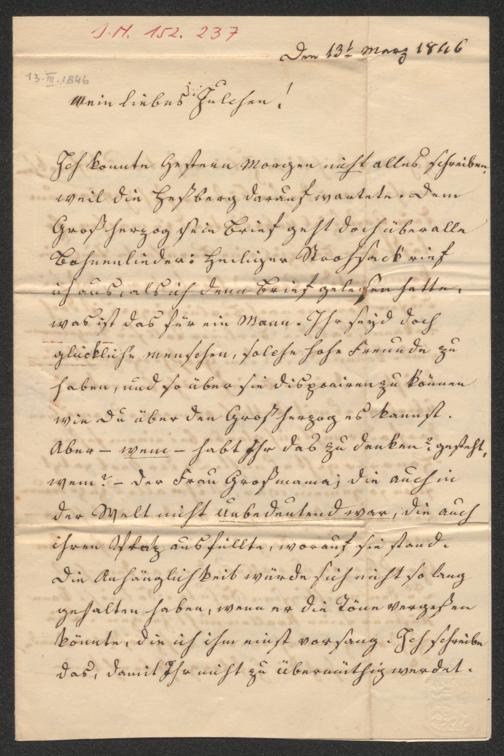 I.N. 152.237
Den 13t März 1846
13.III.1846
Mein liebes Julchen!
Ich konnte Gestern Morgen nicht alles schreiben,
weil die Heßberg darauf wartete. Dem
Großherzog sein Brief geht doch über alle
Bohnenlieder: Heiliger Strohsack rief
ich aus, als ich denn Brief gelesen hatte,
was ist das für ein Mann. Ihr seyd doch
glückliche Menschen, solche hohe Freunde zu
haben, und so über sie disponiren zu können
wie Du über den Großherzog es kannst.
Aber – wem – habt Ihr das zu denken? gesteht,
wem? – Der Frau Großmama; die auch in
der Welt nicht unbedeutend war, die auch
ihren Platz ausfüllte, worauf sie stand.
Die Anhänglichkeit würde sich nicht so lang
gehalten haben, wenn er die Töne vergeßen
könnte, die ich ihm einst vorsang. Ich schreibe
das, damit Ihr nicht zu übermüthig werdet.